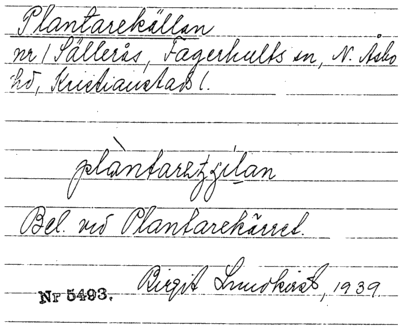 Plantarekällan
nr 1 Sällerås, Fagerhults sn, N. Åsbo
hd, Kristianstads l.
plàntaretʒi̯lan
Bel. vid Plantarekärret.
Birgit Lundkvist, 1939
Nr 5493.